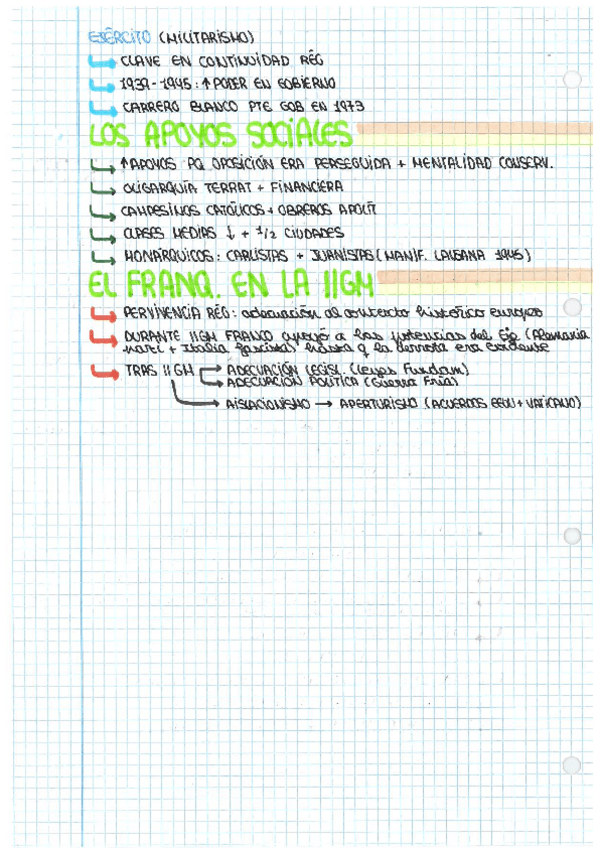 EJÉRCITO (MILITARISMO)
CLAVE EN CONTINUIDAD RÉG
1939-1945: ↑ PODER EN GOBIERNO
CARRERO BLANCO PTE GOB EN 1973
LOS APOYOS SOCIALES
↑ APOYOS PQ OPOSICIÓN ERA PERSEGUIDA + MENTALIDAD CONSERV.
OLIGARQUÍA TERRAT + FINANCIERA
CAMPESINOS CATÓLICOS + OBREROS APOLÍT
CLASES MEDIAS ↓ + 1/2 CIUDADES
MONÁRQUICOS: CARLISTAS + JUANISTAS (MANIF. LAUSANA 1945)
EL FRANQ. EN LA IIGM
PERVIVENCIA RÉG: adecuación al contexto histórico europeo
DURANTE IIGM FRANCO apoyó a las potencias del Eje (Alemania
nazi + Italia fascista) hasta q la derrota era
TRAS IIGM → ADECUACIÓN LEGISL. (Leyes Fundam)
→ ADECUACIÓN POLÍTICA (Guerra Fría)
→ AISLACIONISMO → APERTURISMO (ACUERDOS EEUU + VATICANO)